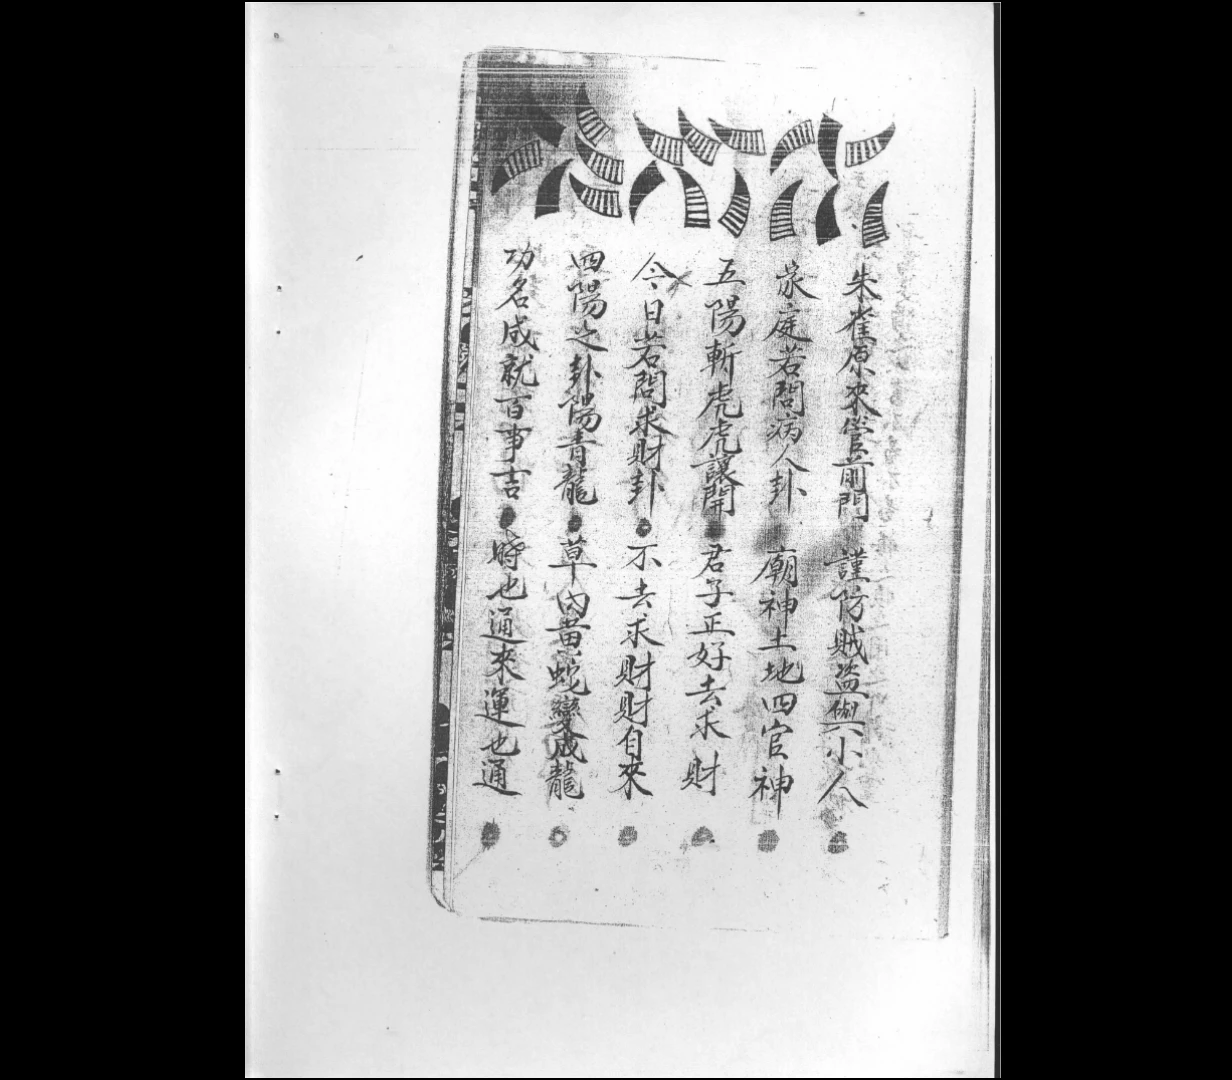 朱雀原來管前門 謹防賊盜與小人
家庭若問病人卦 廟神土地四官神
五陽斬虎虎讓開 君子正好去求財
今日若問求財卦 不去求財財自來
四陽之卦陽青龍 草內黃蛇變成龍
功名成就百事吉 時也通來運也通